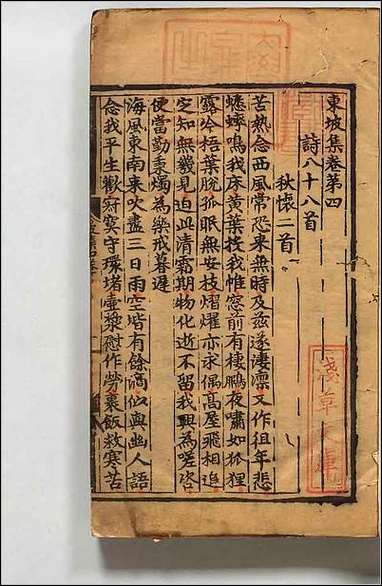 東坡集卷第四
詩八十八首
秋懷二首
苦熱念西風常恐来無時及兹遂淒凛又作徂年悲
蟋蟀鳴我床黄葉投我帷窓前有棲鵩夜嘯如狐狸
露冷梧葉脫孤眠無安枝熠燿亦求偶高屋飛相追
定知無幾見迫此清霜期物化逝不留我興為嗟咨
便當勤秉燭為樂戒暮遲
海風東南来吹盡三日雨空堦有餘滴似與幽人語
念我平生歡寂寞守環堵壷漿慰作勞裹飯救寒苦
淺草文庫